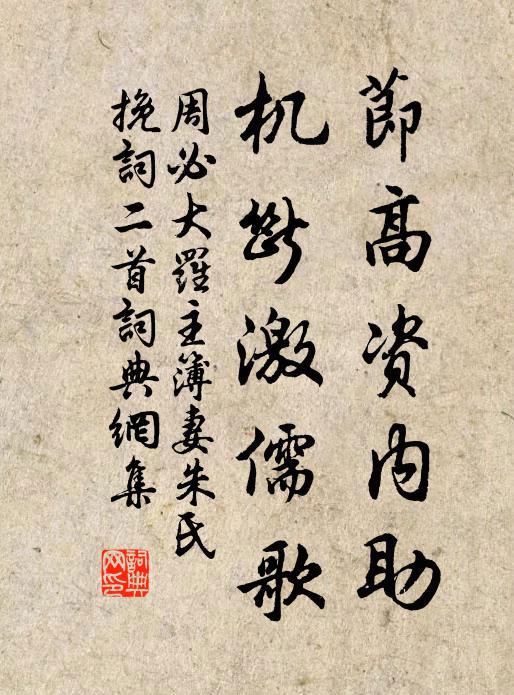 節高资内助
机斷激儒歌
周必大羅主簿妻朱氏
挽詞二首詞典網集
詞典网印